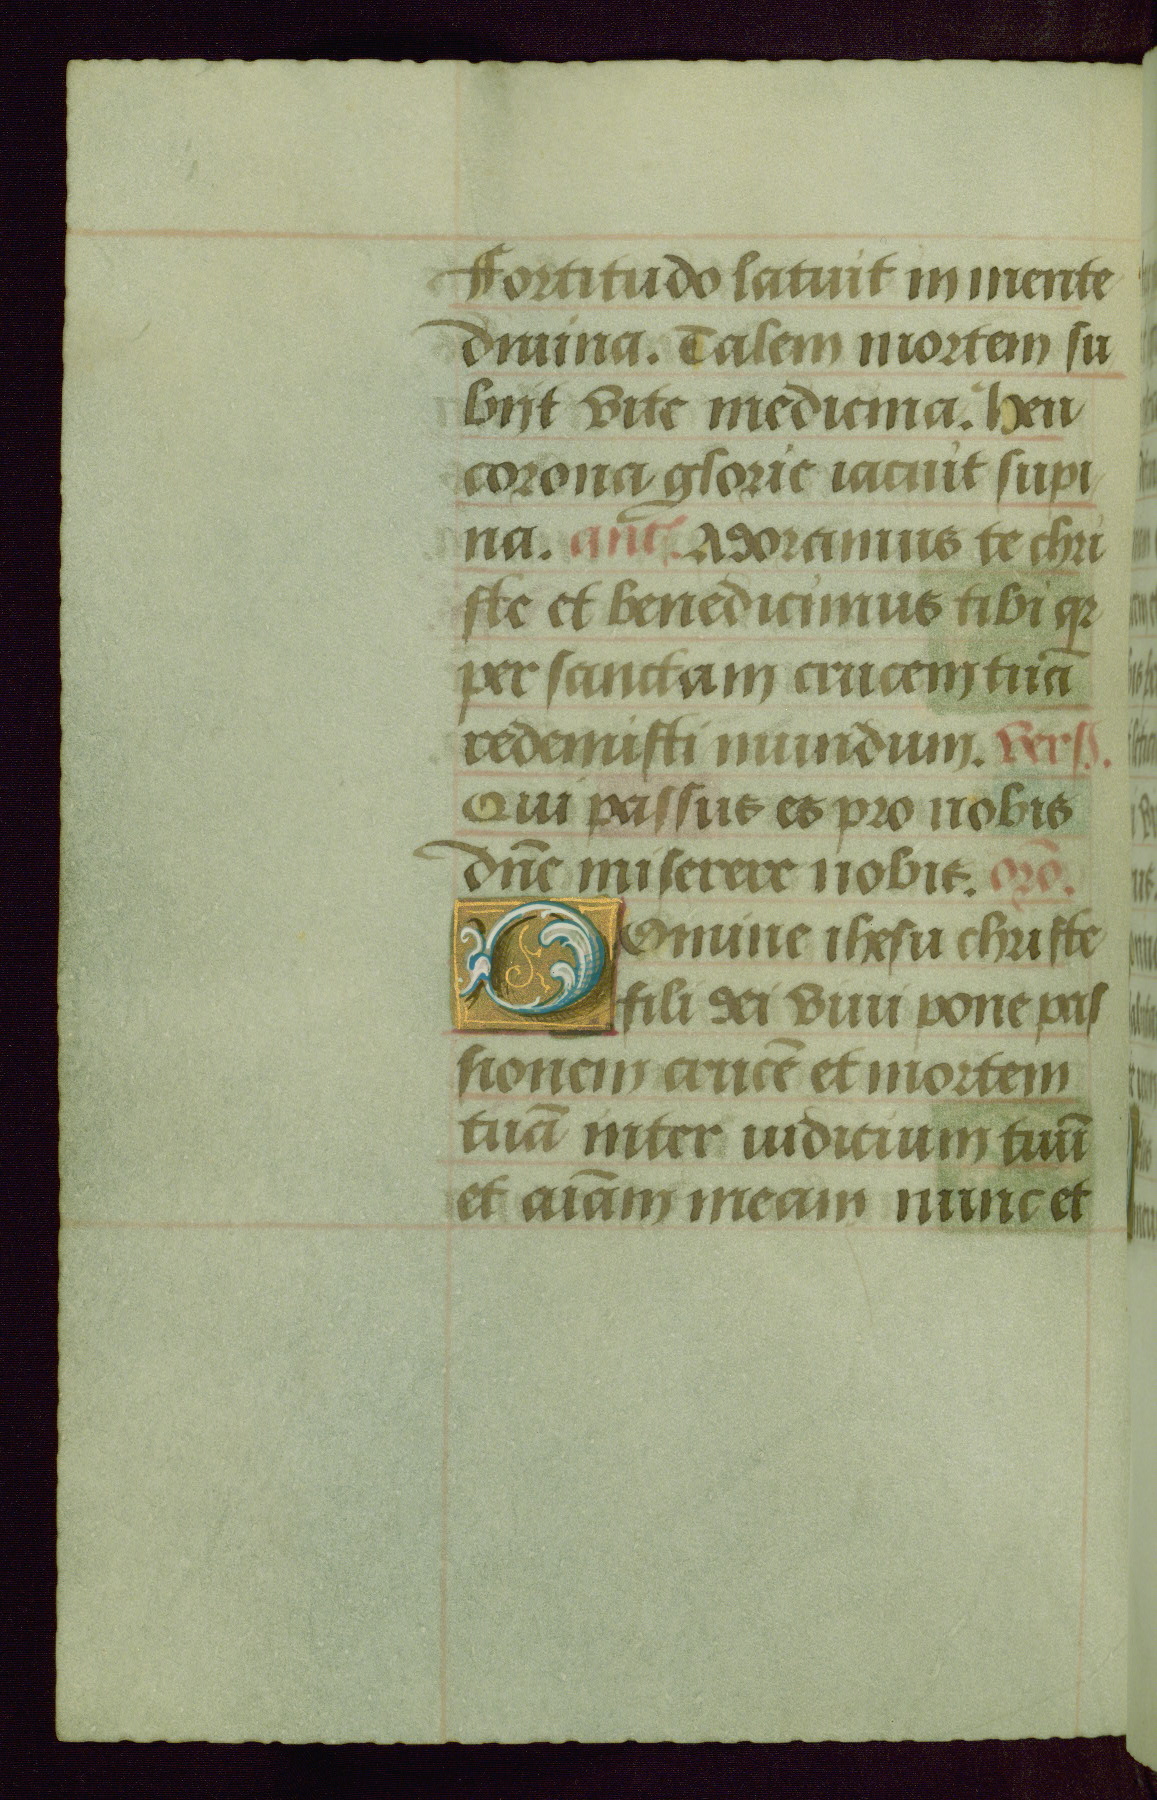 Fortitudo latuit in mente
diuina. Talem mortem su
bijt vite medicina. heu
corona glorie iacuit supi
na. ant̄. Adoramus te chri
ste et benedicimus tibi qr
per sanctam crucem tuā
redemisti mundum. vers.
Qui passus es pro nobis
dn̄e miserere nobis. orō.
Domine ihesu christe
fili dei viui pone pas
sionem crucē et mortem
tuā inter iudicium tuū
et aīam meam nunc et